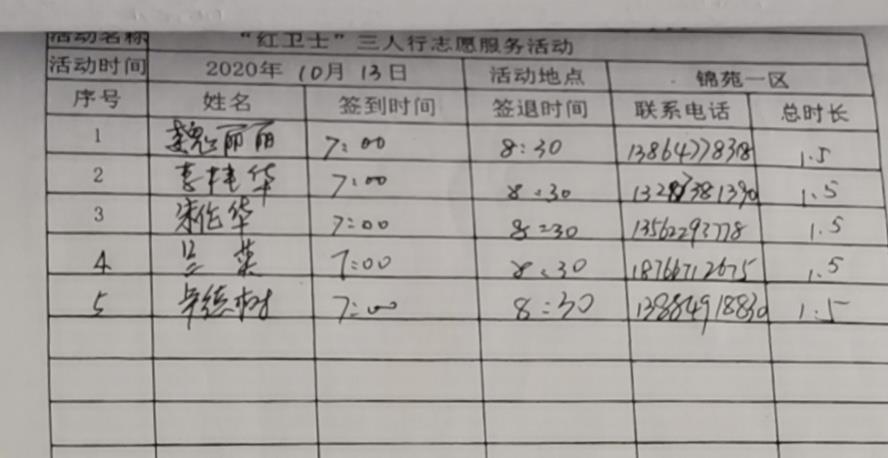 活动名称 “红卫士”三人行志愿服务活动
活动时间 2020年 10月 13日 活动地点 锦苑一区
序号 姓名 签到时间 签退时间 联系电话 总时长
1 魏丽丽 7:00 8:30 13864778318 1.5
2 李桂华 7:00 8:30 1.5
3 宋伦华 7:00 8:30 13562293778 1.5
4 兰英 7:00 8:30 18766712675 1.5
5 辛德树 7:00 8:30 13884918830 1.5